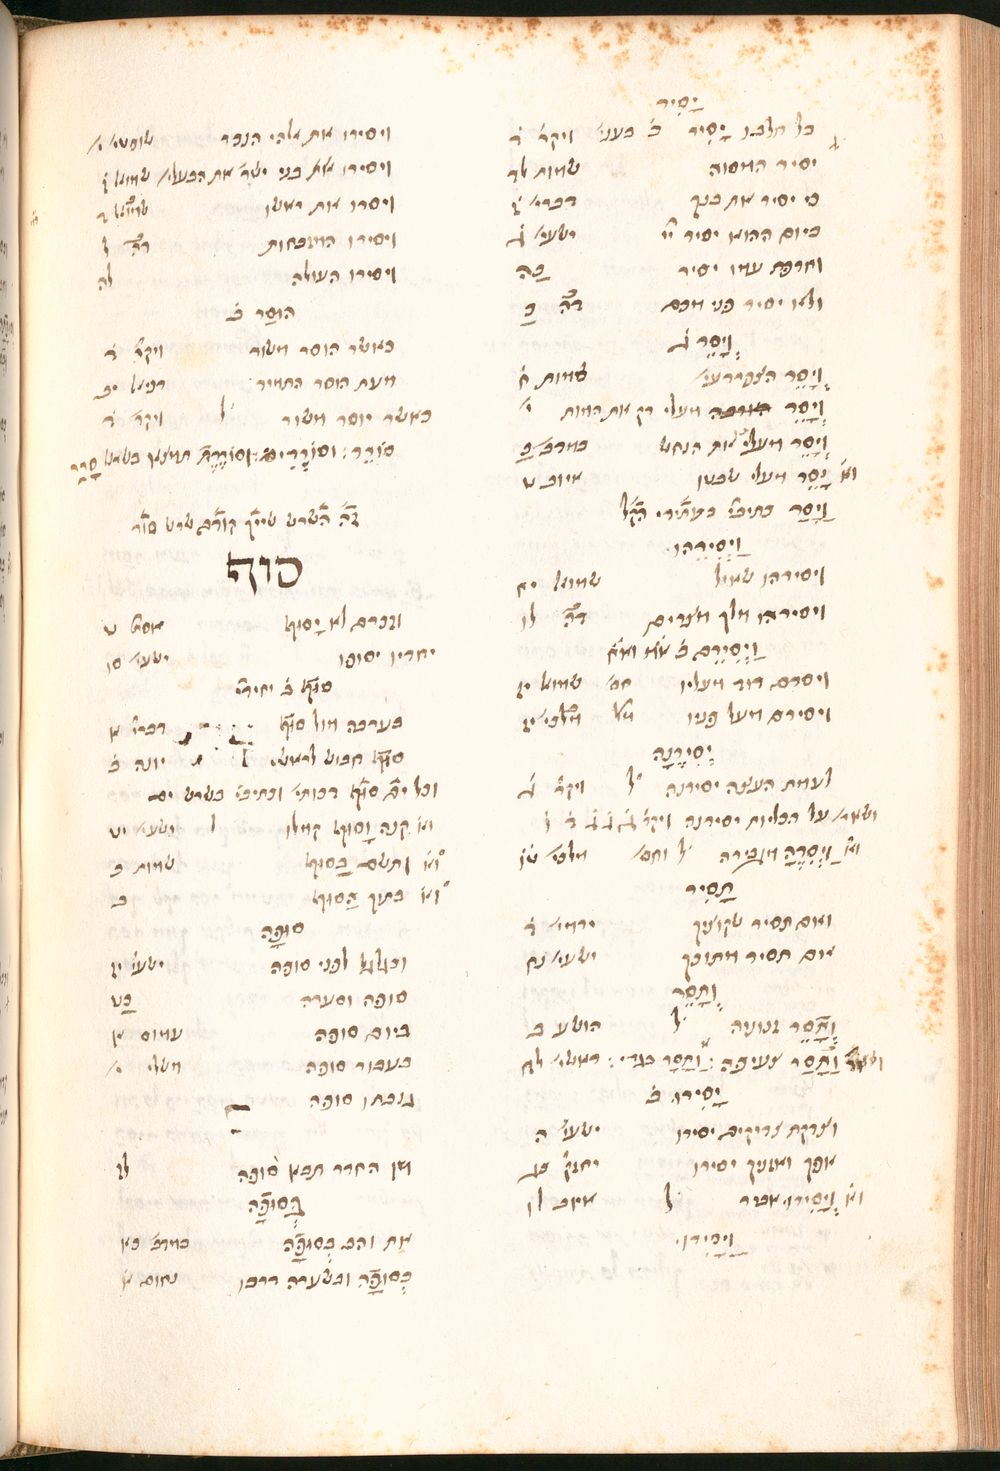 יָסִיר
כל חלבו יָסִיר ב֗ בעני֗ ויקר֗ ד֗
יסיר המסוה שמות לד
כי יסיר את בנך דברי֗ ז֗
ביום ההוא יסיר יי֗ ישעי֗ ג֗
וחרפת עמו יסיר כה
ולא יסיר פני מכם דה֗ ב ל
וָיָסֵר ג֗
וְיָסֵר הצפרדעי֗ שמות ח֗
וְיָסֵר מעלי רק את המות י֗
וְיָסֵר מעלינו את הנחש במדב֗ כ
וא֗ יָסֵר מעלי שבטו איוב ט
וַיָּסַר
וַיְסִירֵהוּ
ויסירהו שאול שמואל יח
ויסירהו מלך מצרים דה֗ לו
וַיְסִירֵם ב֗
ויסרם דוד מעליו חס֗ שמואל יז
ויסירם מעל פניו מל֗ מלכי֗ יז
יְסִירֶנָּה
לעמת העצה יסירנה ל֗ ויקר֗ ג֗
ושאי֗ על הכליות יסירנה ויקר֗ ג֗ ג֗ ג֗ ד֗ ז֗
וא֗ וַיְסִרֶהָ מגבירה ל֗ וחס֗ מלכי֗ טו֗
תָּסִיר
ואם תסיר שקוציך ירמי֗ ד֗
אם תסיר מתוכך ישעי֗ נח
וְתָסֵר
וְתָסֵר זנוניה ל֗ הושע ב
וַתָּסַר צעיפה : וַתָּסַר בגדי֗ : בראשי֗ לח
יָסִירוּ ב֗
וצדקת צדיקים יסירו ישעי֗ ה
אפך ואזניך יסירו יחזק֗ כג
וא֗ וְיָסִירוּ אמר ל֗ איוב לו
וַיָּסִירוּ
ויסירו את אלהי הנכר שופטי֗ י֗
ויסירו את בני ישר֗ את הבעלי֗ שמואל ז֗
ויסרו את ראשו שמו֗ ב ד
ויסירו המזבחות דה֗ ל
ויסירו העולה לה
הוּסַר ב֗
כאשר הוסר משור ויקר֗ ד֗
מעת הוסר התמיד דניאל יב
כאשר יוסר משור ל֗ ויקר֗ ד֗
סוֹרֵר : וסוֹרֲרִים : וסוֹרֶרֶת תמצא בשרש סָרַר
זה֗ השרש שייך קודם שרש סור
סוף
וזכרם לא יָסוּף אסת֗ ט
יחדיו יסופו ישעי֗ סו
סוּף ב֗ יחידי֗
בערבה מול סוף דברי֗ א
סוף חבוש לראשי֗ יונה ב֗
וכל ים סוף דכותי֗ וכתיב֗ בשרש ים
וא֗ קנה וָסוּף קמלו ל֗ ישעי֗ יט
וא֗ ותשם בַּסּוּף שמות ב
וא֗ בתוך הַסּוּף ב
סוּפָה
וכגלגל לפני סופה ישעי֗ יז
סופה וסערה כט
ביום סופה עמוס א
כעבור סופה משלי י֗
גנבתו סופה
מן החדר תבא סופה לז
בְּסוּפָה
את והב בְּסוּפָה במדב֗ כא
בְּסוּפָה ובשערה דרכו נחום א֗